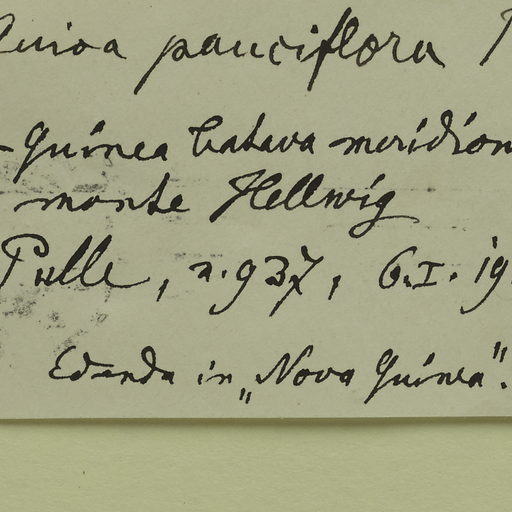 Guioa pauciflora
-Guinea batava meridion
monte Hellwig
Pulle, n. 937, 6.I.19
Edenda in „Nova Guinea".